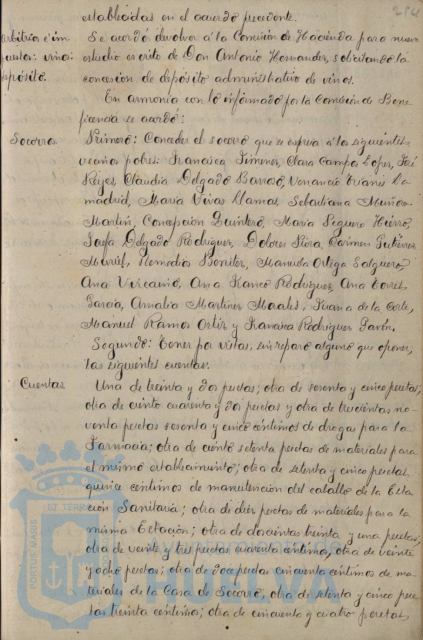 establecidas en el acuerdo precedente.
Arbitrios é im
puestos: vinos:
depósito.
Se acordó devolver á la Comisión de Hacienda para nuevo
estudio escrito de Don Antonio Hernandez, solicitando la
concesion de depósito administrativo de vinos.
En armonía con lo informado por la Comisión de Bene
ficencia se acordó:
Socorro
Primero: Conceder el socorro que se expresa á los siguientes
vecinos pobres: Francisca Jimenez, Clara Campos Lopez, José
Reyes, Claudia Delgado Barroso, Venancio
madrid, María Vivas Llamas, Sebastiana Muñoz
Martin, Concepcion Quintero, María Seguro Hierro,
Josefa Delgado Rodriguez, Dolores Carmen Gutierrez
Muriel, Remedios Benitez, Manuela Ortega Salguero,
Ana Vizcaino, Ana Franco Rodriguez, Ana Torres
García, Amalia Martinez Morales, Juana de la Corte,
Manuel Ramos Ortiz y Francisca Rodriguez Pavón.
Segundo: Tener por vistas, sin reparo alguno que oponer,
las siguientes cuentas:
Cuentas
Una de treinta y dos pesetas; otra de sesenta y cinco pesetas;
otra de ciento cuarenta y dos pesetas y otra de trescientas no-
venta pesetas sesenta y cinco centimos de drogas para la
Farmacia; otra de ciento setenta pesetas de materiales para
el mismo establecimiento; otra de setenta y cinco pesetas
quince centimos de manutencion del caballo de la Esta
ción Sanitaria; otra de diez pesetas de materiales para la
misma Estación; otra de doscientas treinta y una pesetas;
otra de veinte y tres pesetas cuarenta centimos, otra de veinte
y ocho pesetas; otra de doce pesetas cincuenta centimos de ma-
teriales de la Casa de Socorro, otra de setenta y cinco pese
tas treinta centimos; otra de cincuenta y cuatro pesetas,
PORTUS MARIS
ET TERRÆ
HUELVA